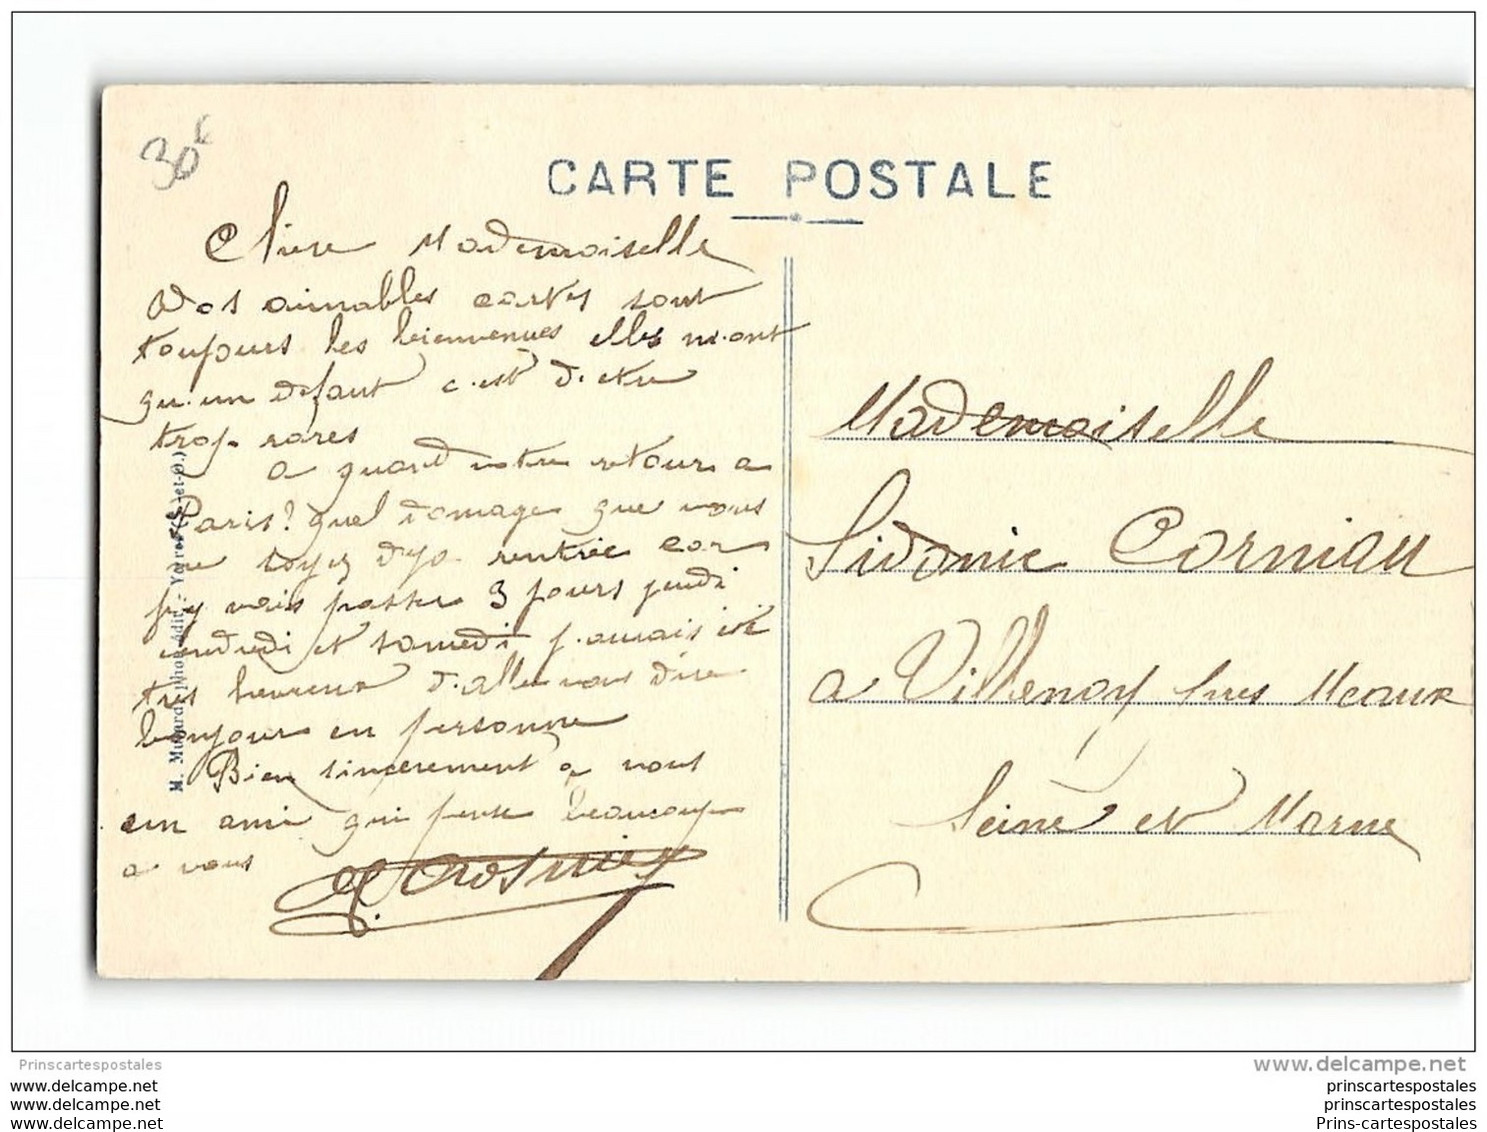 30€
CARTE POSTALE
Chère Mademoiselle
Vos aimables cartes sont
toujours les bienvenues elles m.ont
qu.un defaut c.est d.etre
trop rares
a quand votre retour a
Paris? quel domage que vous
ne soyez deja rentrée car
j'y vais passer 3 jours jeudi
vendredi et samedi j.aurais été
tres heureux d.aller vous dire
bonjour en personne
Bien sincerement a vous
un ami qui pense beaucoup
a vous
M. Mugard, phot. édit. - Yerres (S.-et-O.)
Mademoiselle
Sidonie Corniau
a Villenoy pres Meaux
Seine et Marne
Prinscartespostales
www.delcampe.net
www.delcampe.net
www.delcampe.net
www.delcampe.net
prinscartespostales
prinscartespostales
Prins-cartespostales